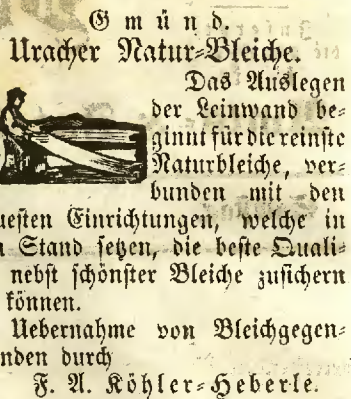 Gmünd.
Uracher Natur-Bleiche.
Das Auslegen
der Leinwand be-
ginnt für die reinste
Naturbleiche, ver-
bunden mit den
uesten Einrichtungen, welche in
n Stand setzen, die beste Quali-
nebst schönster Bleiche zusichern
können.
Uebernahme von Bleichgegen-
nden durch
F. A. Köhler-Heberle.